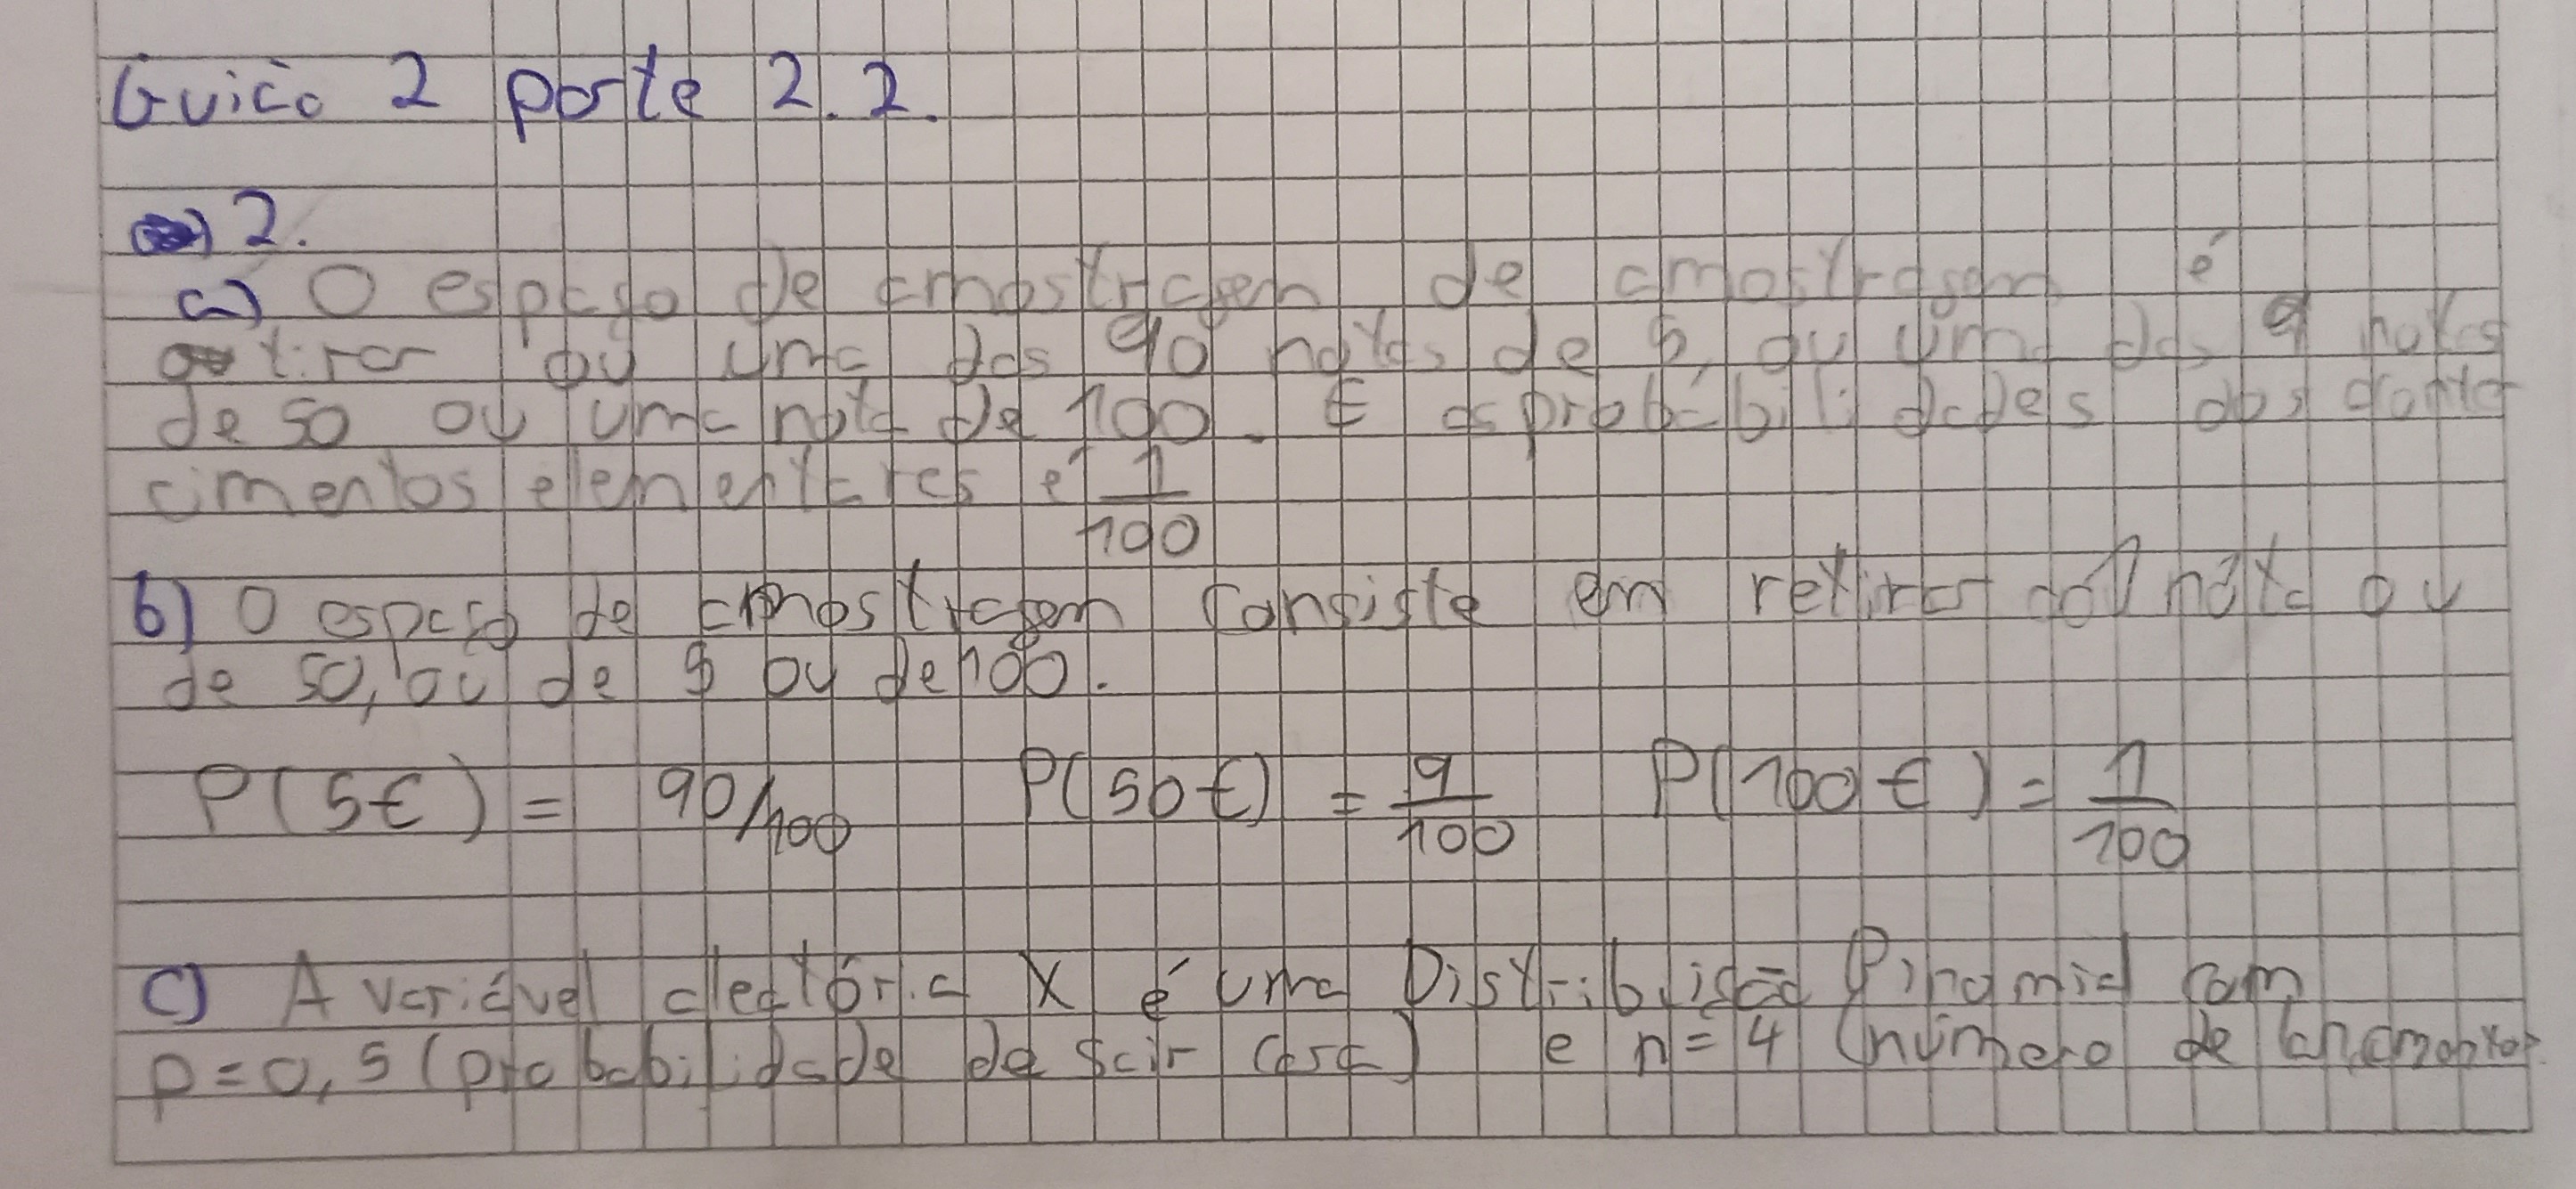 Guião 2 parte 2.2.
2.
a) O espaço de amostragem de amostragem é
tirar ou uma das 90 notas de 5, ou uma das 9 notas
de 50 ou uma nota de 100. E as probabilidades dos
cimentos elementares é 1/100
b) O espaço de amostragem consiste em retirar 1 nota ou
de 50, ou de 5 ou de 100.
P(5€) = 90/100 P(50€) = 9/100 P(100€) = 1/100
c) A variável aleatória X é uma Distribuição Binomial com
p=0,5 (probabilidade de sair cara) e n=4 (número de